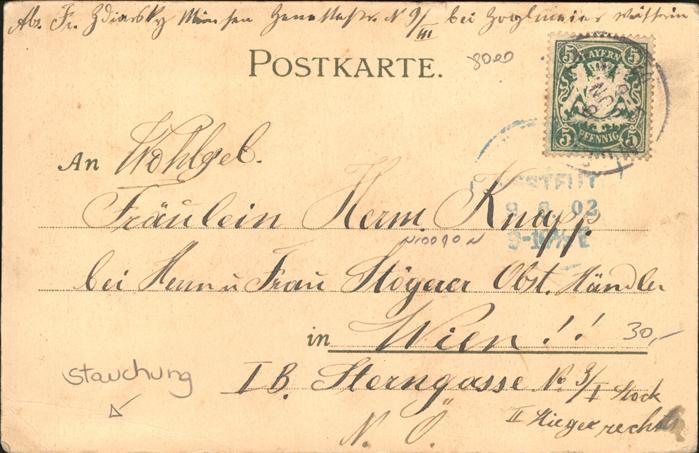 Abs. Fr. Zdiarsky München Zenettistr. N 9/III bei Zorglmeier
8000
POSTKARTE.
5 BAYERN 5
5 PFENNIG 5
An Wohlgel.
Fräulein Herm. Knapp
bei Herrn u Frau Stögerer Obst. Händler
in Wien!!
30,-
Stauchung
I B. Sterngasse No 3/I Stock
II Stiege rechts
N. Ö.